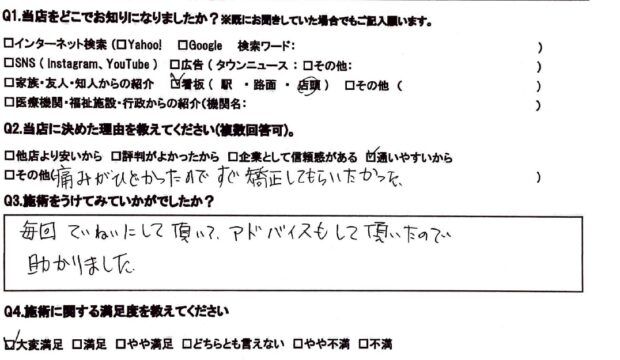 Q1.当店をどこでお知りになりましたか？※既にお聞きしていた場合でもご記入願います。
□インターネット検索（□Yahoo!　□Google　検索ワード：　）
□SNS（Instagram、YouTube）□広告（タウンニュース：□その他：　）
□家族・友人・知人からの紹介　☑看板（駅・路面・店頭）□その他（　）
□医療機関・福祉施設・行政からの紹介（機関名：
Q2.当店に決めた理由を教えてください（複数回答可）。
□他店より安いから □評判がよかったから □企業として信頼感がある ☑通いやすいから
□その他（痛みがひどかったのですぐ矯正してもらいたかった、）
Q3.施術をうけてみていかがでしたか？
毎回ていねいにして頂いて、アドバイスもして頂いたので
助かりました。
Q4.施術に関する満足度を教えてください
☑大変満足 □満足 □やや満足 □どちらとも言えない □やや不満 □不満